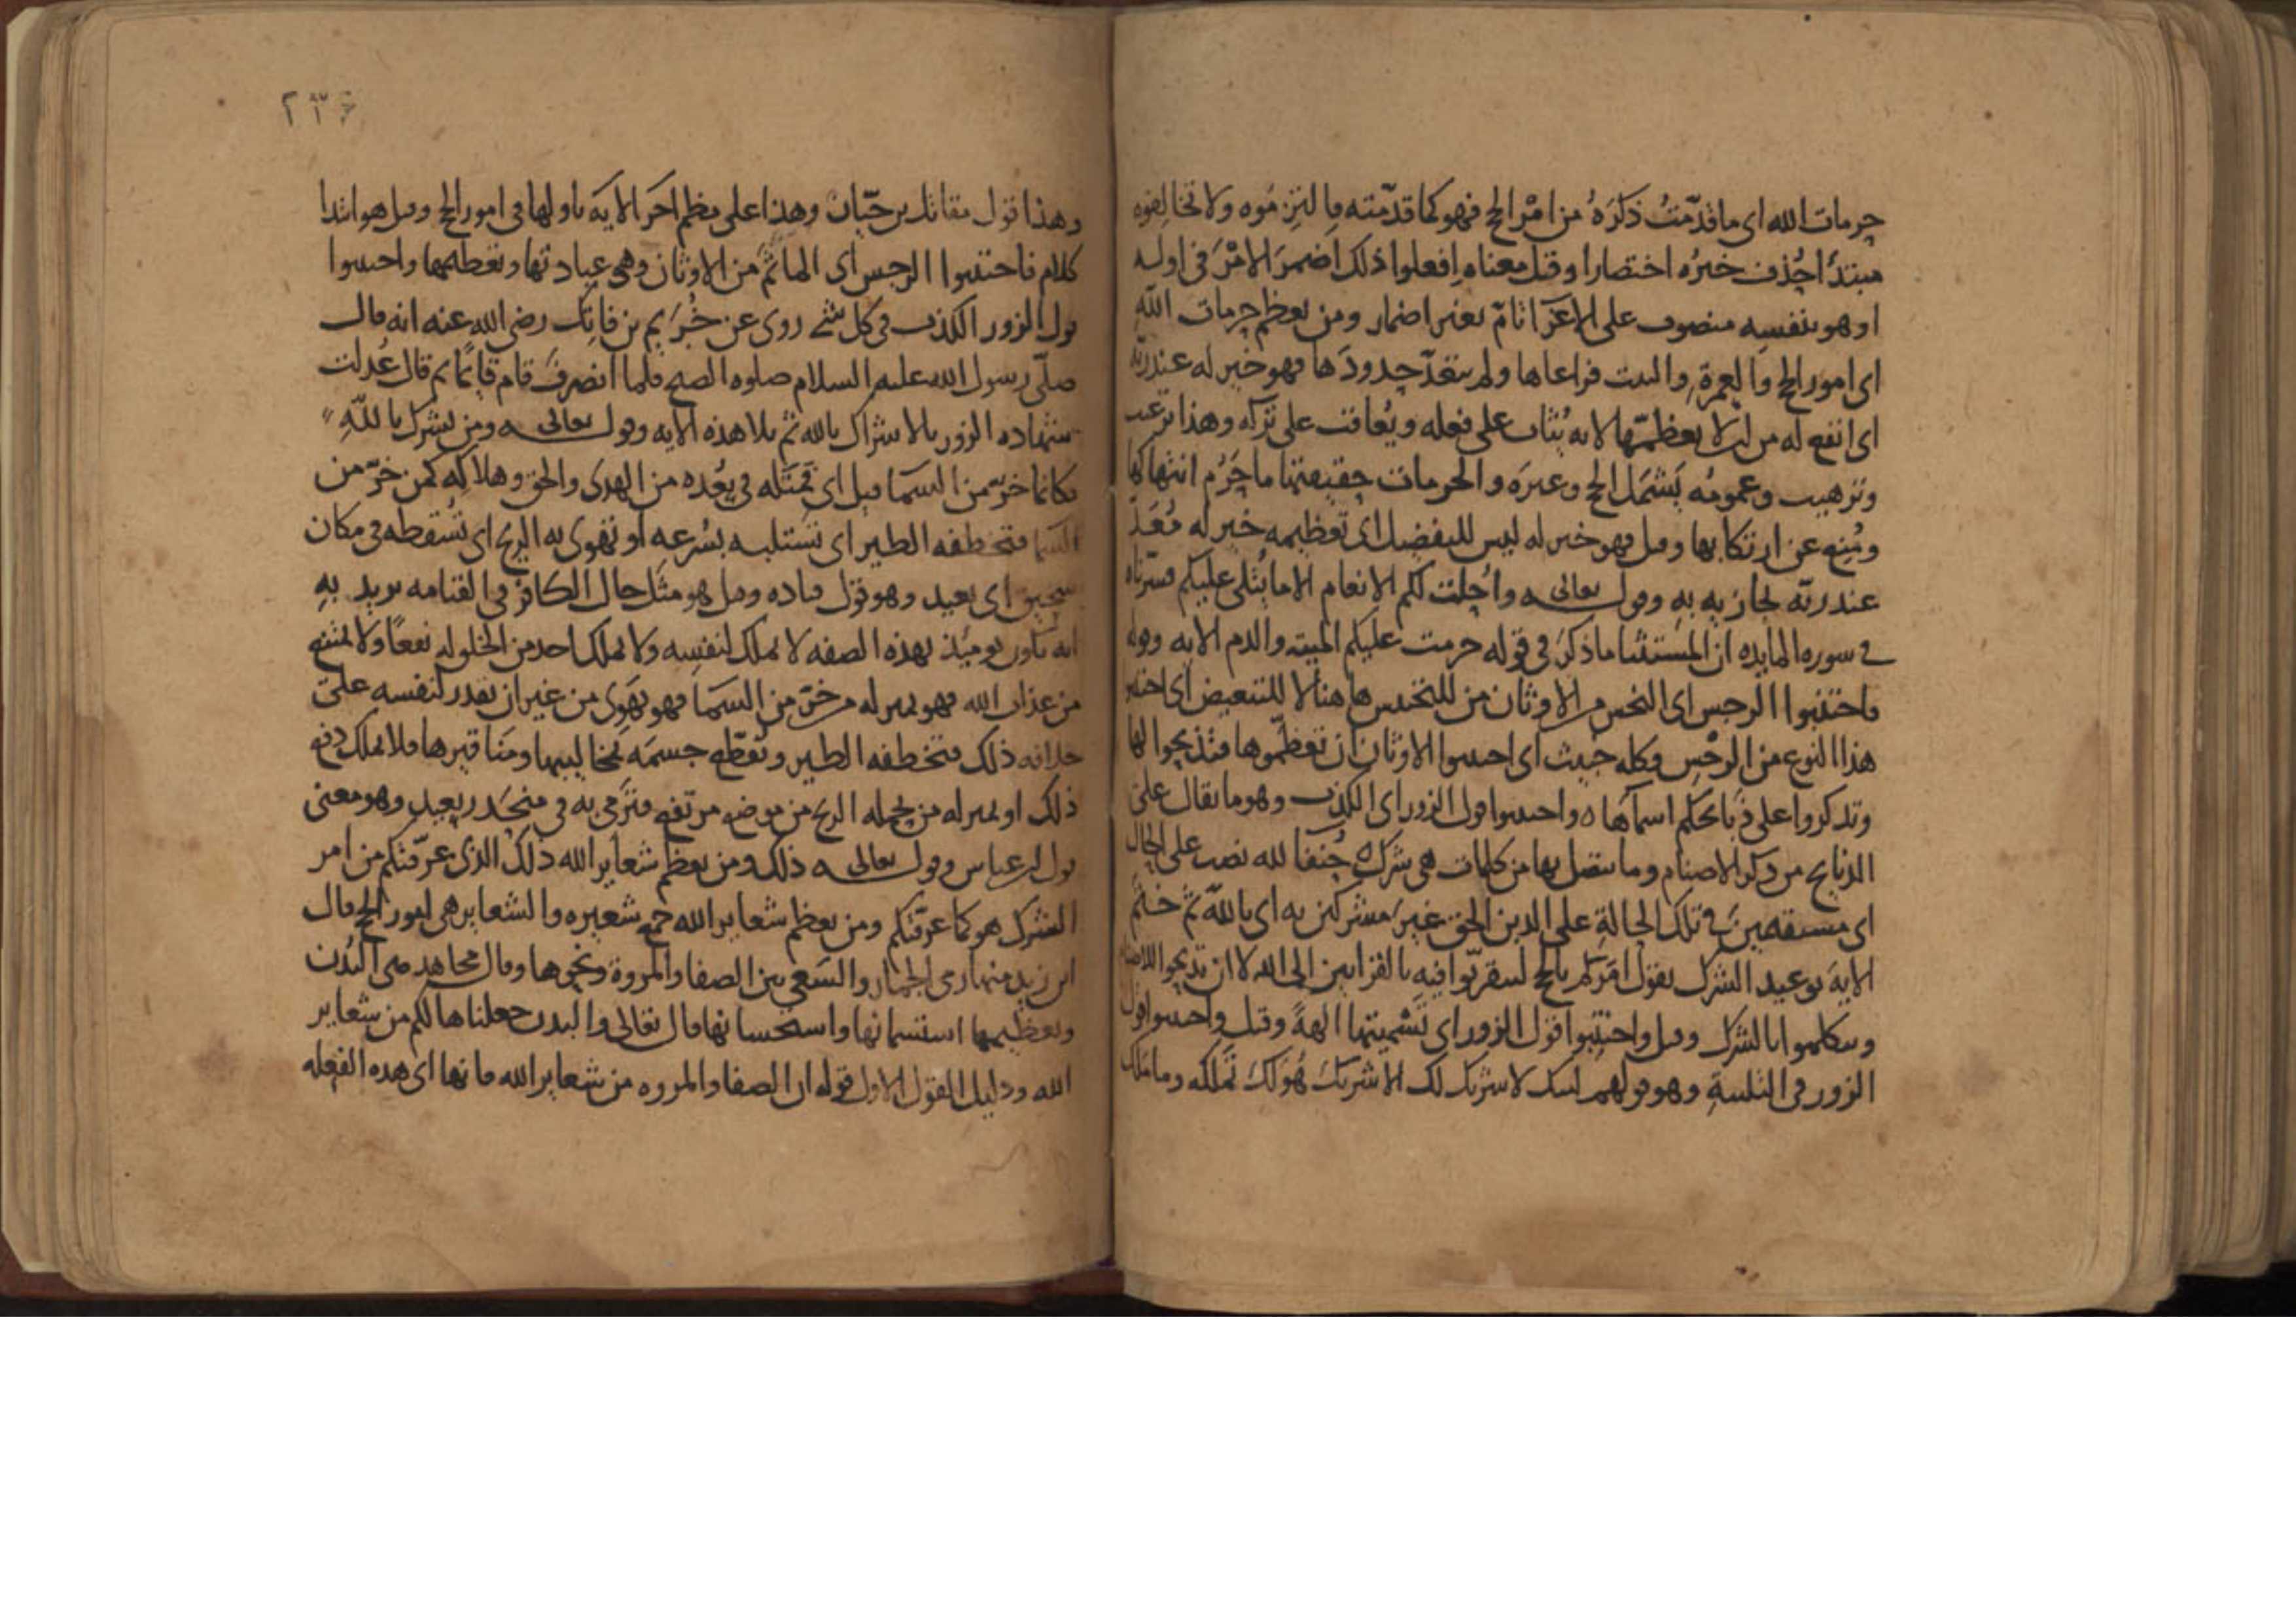 حرمات الله اى ما قدّمتُ ذكرَهُ من امْر الحج فهو كما قدّمته فالتزِموه ولا تخالفوه
مبتدأ حُذف خبرُه اختصارا وقيل معناه افعلوا ذلك اضمرَ الامْرَ فى اوله
او هو بنفسِه منصوب على الاغراء تامّ بغير اضمار ومن يعظم حرمات الله
اى امور الحج والعمرة والبيت فراعاها ولم يتعدّ حدودَها فهو خير له عند ربّه
اى انفع له من ان لا يعظمّها لانه يُثاب على فعله ويُعاقب على تركه وهذا ترغيب
وترهيب وعمومُه يَشمَل الحج وغيرَه والحرمات حقيقتها ما حَرُم انتهاكها
ومُنِع عن ارتكابها وقيل فهو خير له ليس للتفضيل اى تعظيمه خير له مُعَدّ
عند ربّه يجازيه به وقوله تعالى وأُحلّت لكم الانعام الا ما يُتلى عليكم فسّرناه
فى سوره المايده ان المستثنا ما ذكرَ فى قوله حرمت عليكم الميته والدم الايه وقوله
فاجتنبوا الرجس اى النجس من الاوثان من للتجنيس هاهنا لا للتبعيض اى اجتنبوا
هذا النوع من الرجْسِ وكله خبيث اى اجتنبوا الاوثان ان تعظّموها فتذبحوا لها
وتذكروا على ذبائحكم اسمآها ه واجتنبوا قول الزور اى الكذب وهو ما يقال على
الذبايح من ذكر الاصنام وما يتصل بها من كلمات هى شرك ه حُنفا لله نصب على الحال
اى مستقيمين فى تلك الحالةِ على الدين الحق غيرَ مشركين به اى بالله ثم ختم
الايهَ بوعيد الشرك يقول امَرَكم بالحج لتتقربّوا فيهِ بالقرابين الى الله لا ان تذبحوا للاصنام
وتتكلموا بالشرك وقيل واجتنِبوا قول الزور اى تَسْميتها الهةً وقيل واجتنبوا قول
الزور فى التلبيةِ وهو قولهم لبيك لا شريك لك الا شريكَ هُوَ لكَ تَملكه وما مَلك
٢٣٤
وهذا قول مقاتل بن حبّان وهذا على نظم اخَر الايه باولها فى امور الحج وقيل هو ابتدا
كلام فاجتنبوا الرجس اى الماثَم من الاوثان وهى عبادتها وتعظيمها واجتنبوا
قول الزور الكذب فى كل شئ روى عن خُرَيم بن فاتِك رضى الله عنه انه قال
صلّى رسول الله عليه السلام صلوه الصبح فلما انصرفَ قام قائمًا ثم قال عُدلت
شهاده الزور بالاشراك بالله ثم تلا هذه الايه وقوله تعالى ومن يشرك باللهِ
فكانما خرّ من السما قيل اى مَثَله فى بُعْده من الهدى والحق وهلاكِه كمن خرّ من
السما فتخطفه الطير اى تستلبه بسُرعه او تهوى به الريح اى تُسْقطه فى مكان
سحيق اى بعيد وهو قول قتاده وقيل هو مثَل حال الكافر فى القيامه يريد به
انه يكون يوميٕذ بهذه الصفه لا يملك لنفسِه ولا يملك احد من الخلق له نفعًا ولا يمتنع
من عذاب الله فهو بمنزله من خرّ من السما فهو يهوى من غير ان يقدر لنفسه على
خلاف ذلك فتخطفه الطير وتُقطّع جسمَه بمخاليبها ومَناقيرها فلا يملك دفع
ذلك او بمنزله من يحمله الريح من موضع مرتفع فترمى به فى منحَدر بعيد وهو معنى
قول ابن عباس وقوله تعالى ذلك ومن يعظم شعاير الله ذلك الذى عرّفتكم من امر
الشرك هو كما عرّفتكم ومن يعظم شعاير الله جمع شعيره والشعاير هى امور الحج قال
ابن زيد منها رمى الجمار والسَعى بين الصفا والمروة ونحوها وقال مجاهد هى البُدْن
وتعظيمها استسمانها واستحسانها قال تعالى والبدن جعلناها لكم من شعاير
الله ودليل القول الاول قوله ان الصفا والمروه من شعاير الله فانها اى هذه الفعله